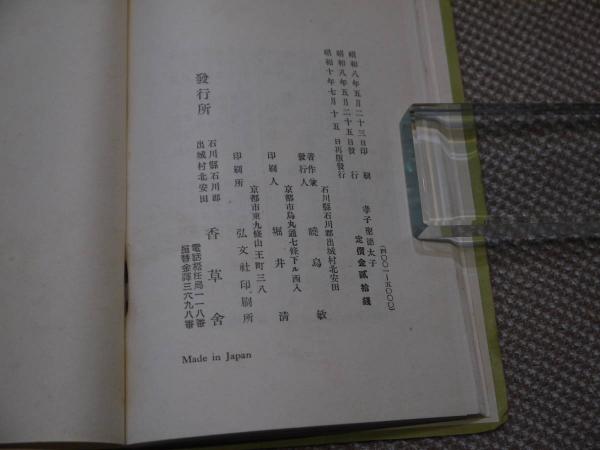 昭和八年五月二十三日印刷
昭和八年五月二十五日發行
昭和十年七月十五日再版發行
(四〇〇一—五〇〇〇)
孝子聖德太子
定價金貳拾錢
石川縣石川郡出城村北安田
著作兼發行人 暁烏敏
京都市烏丸通七條下ル西入
印刷人 堀井清
京都市東九條山王町三八
印刷所 弘文社印刷所
石川縣石川郡
出城村北安田
發行所 香草舍
電話松任局一一八番
振替金澤三六九八番
Made in Japan